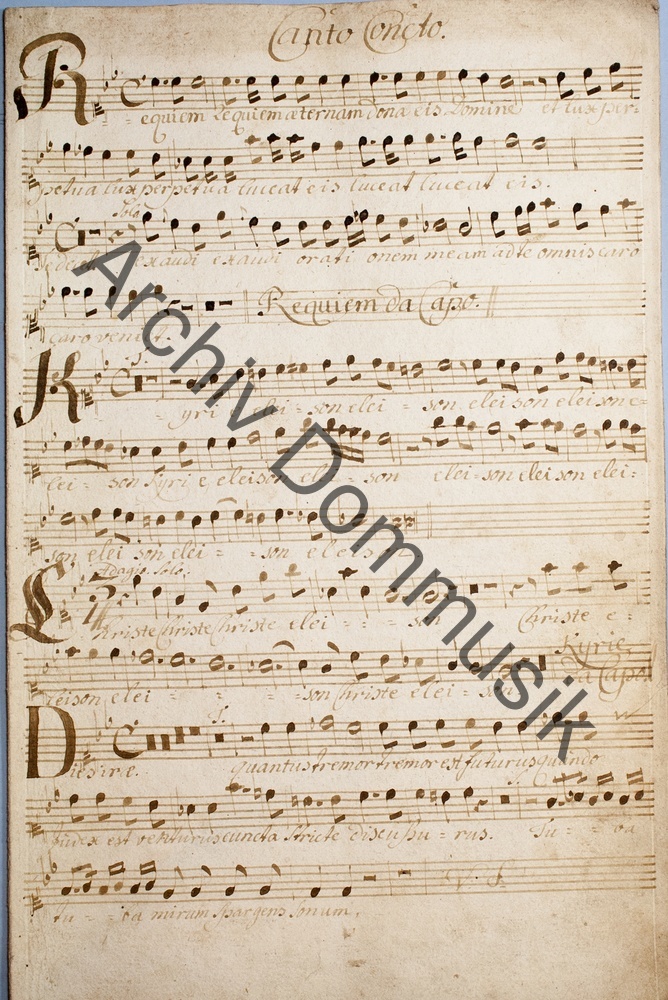 Canto Concto.
Requiem Requiem æternam dona eis Domine et lux per-
petua lux perpetua luceat eis luceat luceat eis.
Solo
Te decet exaudi exaudi orati onem meam ad te omnis caro
caro veniet. Requiem da Capo.
S.
Kyri e elei - son elei - son elei son elei son e-
lei - son Kyri e eleison elei - son elei - son elei son elei-
son elei son elei - - son eleison
Adagio. Solo.
Christe Christe Christe elei - - - son Christe e-
leison elei - - - - son Christe elei - son Kyrie
da Capo.
S.
Dies iræ. quantus tremor tremor est futurus quando
S.
Judex est venturus cuncta stricte discussu - rus. Tu - - ba
tu - - ba mirum spargens sonum,
V. S.
Archiv Dommusik